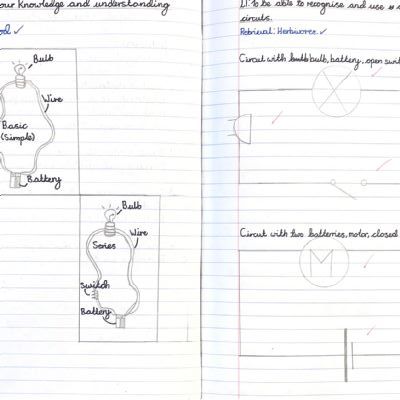 our knowledge and understanding
Bulb
Wire
Basic
(Simple)
Battery
Bulb
Series
Wire
Switch
Battery
LI: To be able to recognise and use
circuits.
Retrieval: Herbivores.
Circuit with bulb, battery, open
Circuit with two batteries, motor, closed
M